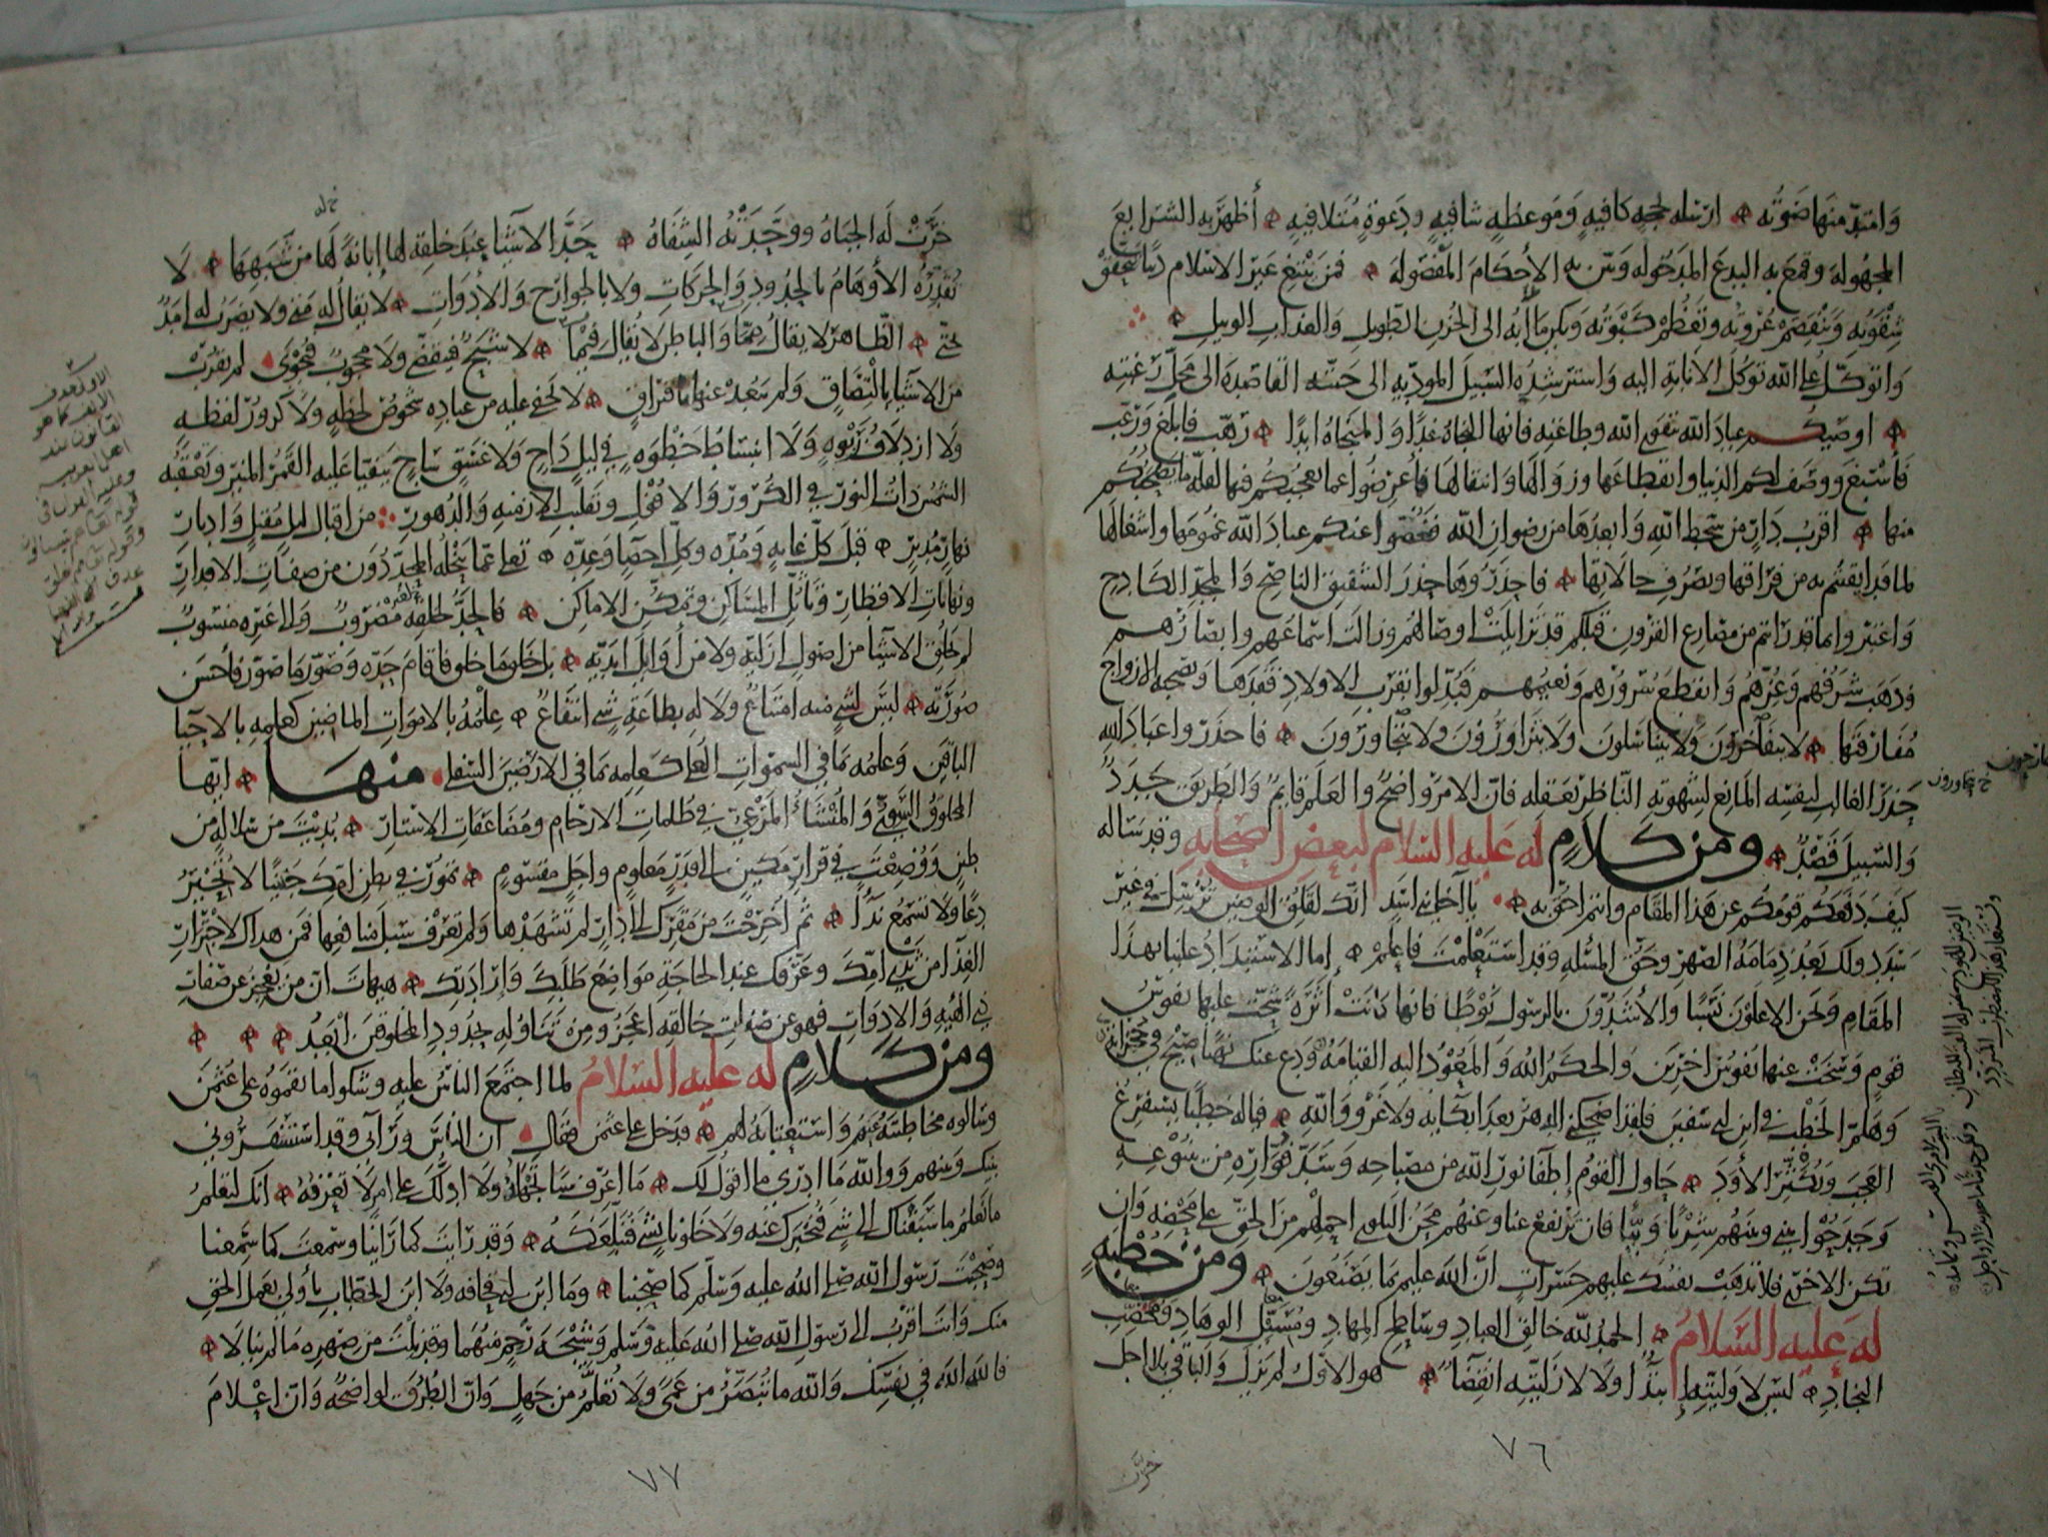 وَامتدّ منها ضوئه ارسله بحجهٍ كافيهٍ وَمَوعظهٍ شافيهٍ ودعوةٍ مُتلافيهٍ أظهرَ به الشرايعَ
المجهوله وقمع به البدع المدخوله وبيّن به الأحكامَ المفصوله فمن يَبْتغ غير الاسلام دينًا تتحقق
شِقْوته وتنفصم عُروته وتعظم كبوته ويكون مآبه الى الحُزن الطويل والعذاب الوبيل
وَاتوكّل على الله توكّل الانابة اليه واسترشده السّبيل المودية الى جنته القاصده الى محلّ رغبته
اوصيكم عبادَ الله بتقوى الله وطاعته فانها النجاة غدًا والمنجاة ابدًا رهّب فابلغ ورغّب
فاسْبغ ووصف لكم الدنيا وانقطاعها وزوالها وانتقالها فأعرضوا عما يعجبكم فيها لقلّة ما يصحبكم
منها اقربُ دارٍ من سخط الله وابعدها من رضوان الله فغضّوا عنكم عبادَ الله غمومها واشغالها
لما قد ايقنتم به من فراقها وتصرّف حالاتها فاحذروها حذر الشفيق الناصح والمجدّ الكادح
واعتبروا بما قد رايتم من مصارع القرون قبلكم قد تزايلت اوصالهم وزالت اسماعهم وابصارهم
وذهب شرفهم وعزهم وانقطع سرورهم ونعيمهم فبدّلوا بقرب الاولاد فقدها وبصحبة الازواج
مفارقتها لا يتفاخرون ولا يتناسلون ولا يتزاورون ولا يتجاورون فاحذروا عبادَ الله
حذر الغالب لنفسه المانع لشهوته الناظر بعقله فانّ الامر واضحٌ والعلم قايمٌ والطريق جددٌ
والسبيل قصدٌ ومن كلامٍ له عليه السلام لبعض اصحابه وقد ساله
كيف دفعكم قومكم عن هذا المقام وانتم احقّ به يا اخا بني اسدٍ انّك لقلق الوضين ترسل في غير
سددٍ ولك بعدُ ذمامة الصهر وحقّ المسلة وقد استعلمت فاعلم اما الاستبداد علينا بهذا
المقام ونحن الاعلون نسبًا والأشدّون بالرسول نوطًا فانها كانت أثرةً شحّت عليها نفوس
قومٍ وسخت عنها نفوس اخرين والحكم الله والمعود اليه القيامة ودع عنك نهبًا صيح في حجراته
وهلمّ الخطب في ابن ابي سفين فلقد اضحكني الدهر بعد ابكايه ولا غرو والله فيا له خطبًا يستفرغ
العجب ويكثر الأود حاول القوم إطفا نور الله من مصباحه وسدّ فوّاره من ينبوعه
وجدحوا بيني وبينهم شربًا وبيًّا فان ترتفع عنا وعنهم محن البلوى احملهم من الحقّ على محضه وان
تكن الاخرى فلا تذهب نفسك عليهم حسراتٍ انّ الله عليم بما يصنعون ومن خطبةٍ
له عليه السلام الحمد لله خالق العباد وساطح المهاد ومسيل الوهاد ومخصب
النجاد ليس لاوليته ابتدا ولا لازليته انقضا هو الاول لم يزل والباقي بلا اجل
٧٦
خرّت
خرّت له الجباه ووحّدته الشفاه حدّ الاشيا عند خلقه لها إبانةً لها من شبهها لا
تقدّره الأوهام بالحدود والحركات ولا بالجوارح والأدوات لا يقال له متى ولا يضرب له امدٌ
بحتّى الظاهر لا يقال ممّا والباطن لا يقال فيما لا شبح فيتقضّى ولا محجوب فيحوى لم يقرب
من الاشيا بالتصاق ولم يبعد عنها بافتراق لا يخفى عليه من عباده شخوص لحظةٍ ولا كرور لفظه
ولا ازدلاف ربوةٍ ولا انبساط خطوةٍ في ليلٍ داجٍ ولا غسقٍ ساجٍ يتفيا عليه القمر المنير وتعقبه
الشمس ذات النور في الكرور والافول وتقلب الازمنه والدهور من اقبال ليل مقبل وادبار
نهارٍ مدبرٍ قبل كلّ غايةٍ ومدّه وكلّ احصا وعدّه تعالى عما ينحله المحدّدون من صفات الاقدار
ونهايات الاقطار وتأثل المساكن وتمكّن الاماكن فالحدّ لخلقه مضروب والى غيره منسوب
لم يخلق الاشيا من اصولٍ ازليّه ولا من أوايل ابديّه بل خلق ما خلق فاقام حدّه وصوّر ما صوّر فاحسن
صورته ليس لشيٍ منه امتناع ولا له بطاعة شيٍ انتفاع علمه بالاموات الماضين كعلمه بالاحيا
الباقين وعلمه بما في السموات العلى كعلمه بما في الارضين السفلى منها ايّها
المخلوق السّويّ والمنشأ المرعيّ في ظلمات الارحام ومضاعفات الاستار بُديت من سلاله من
طين ووضعت في قرارٍ مكينٍ الى قدرٍ معلومٍ واجلٍ مقسومٍ تمور في بطن امّك جنينًا لا تحير
دعًا ولا تسمع ندًا ثم أخرجت من مقرّك الى دارٍ لم تشهدها ولم تعرف سبل منافعها فمن هداك لاجترار
الغذآ من ثدي امّك وعرّفك عند الحاجة مواضع طلبك وارادتك هيهات انّ من يعجز عن صفات
ذي الهية والادوات فهو عن صفات خالقه اعجز ومن تناوله بحدود المخلوقين ابعد
ومن كلامٍ له عليه السلام لما اجتمع الناس عليه وشكوا ما نقموه على عثمن
وسالوه مخاطبته عنهم واستعتابه لهم فدخل على عثمن فقال ان الناس ورآى وقد استسفروني
بينك وبينهم ووالله ما ادري ما اقول لك ما اعرف شيئا تجهله ولا ادلّك على امر لا تعرفه انك لتعلم
ما نعلم ما سبقناك الى شيٍ فنخبرك عنه ولا خلونا بشيٍ فنبلّغكه وقد رايت كما راينا وسمعت كما سمعنا
وصحبت رسول الله صلى الله عليه وسلّم كما صحبنا وما ابن ابي قحافه ولا ابن الخطاب باولى بعمل الحق
منك وانت اقرب الى رسول الله صلى الله عليه وسلم وشيجة رحم منهما وقد نلت من صهره ما لم ينالا
فالله الله في نفسك والله ما تبصّر من عمًى ولا تعلّم من جهلٍ وانّ الطرق لواضحةٌ وانّ اعلام
٧٧